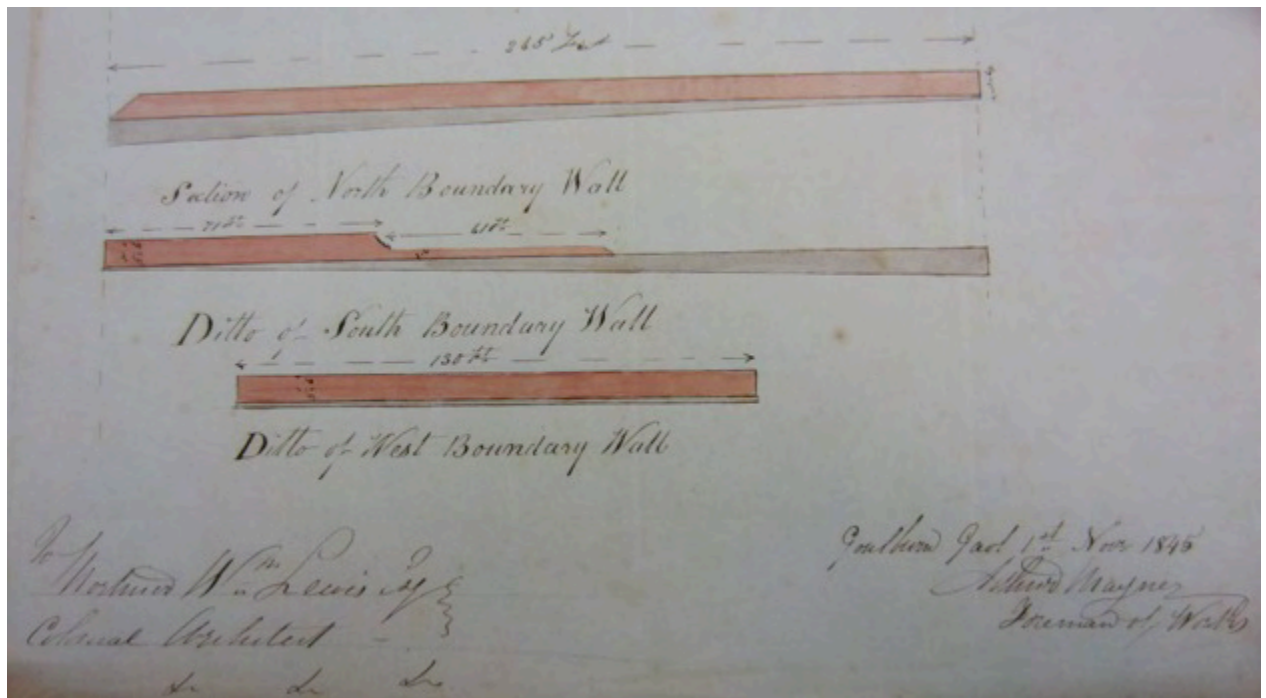 265 Feet
Section of North Boundary Wall
71 Ft
61 Ft
Ditto of South Boundary Wall
130 Ft
Ditto of West Boundary Wall
To
Mortimer Wm Lewis Esq
Colonial Architect
&c &c &c
Goulburn Gaol 1st Novr 1845
Foreman of Works